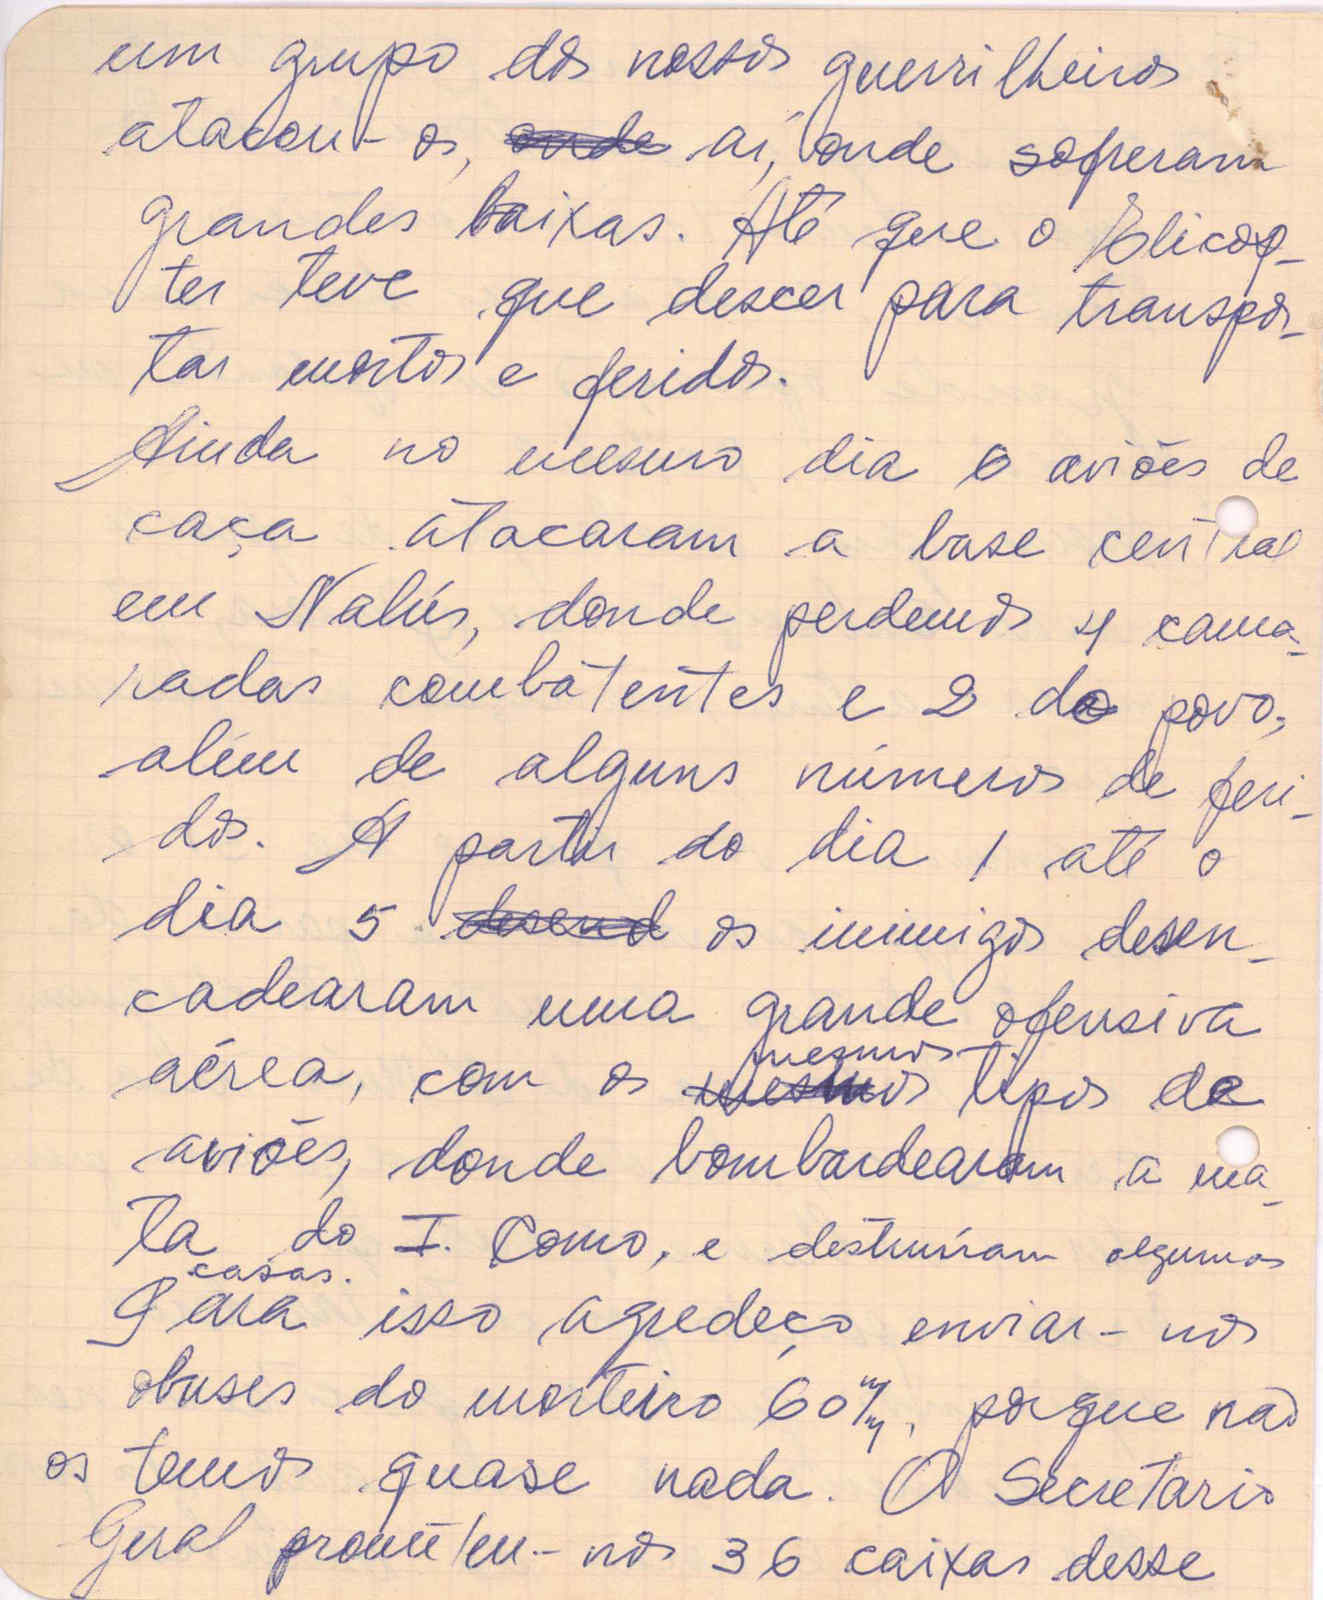 um grupo dos nossos guerrilheiros
atacou-os, onde aí, onde sofreram
grandes baixas. Até que o Elicop-
ter teve que descer para transpor-
tar mortos e feridos.
Ainda no mesmo dia 6 aviões de
caça atacaram a base central
em Nalús, donde perdemos 4 cama-
radas combatentes e 2 do povo,
além de alguns números de feri-
dos. A partir do dia 1 até o
dia 5 desend os inimigos desen-
cadearam uma grande ofensiva
mesmos
aérea, com os mesmos tipos de
aviões, donde bombardearam a ma-
ta do I. Como, e destruíram algumas
casas.
Para isso agredeço enviar-nos
obuses do morteiro 60 m/m, porque não
os temos quase nada. O Secretario
Geral prometeu-nos 36 caixas desse